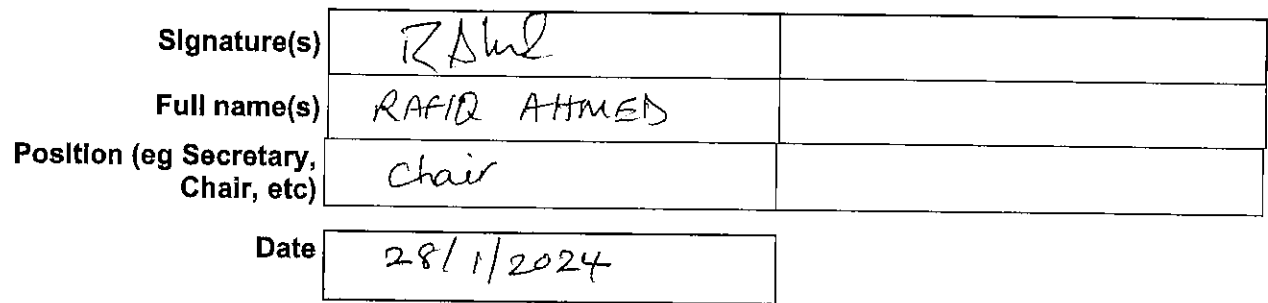 Signature(s)
Full name(s) RAFIQ AHMED
Position (eg Secretary,
Chair, etc) Chair
Date 28/1/2024